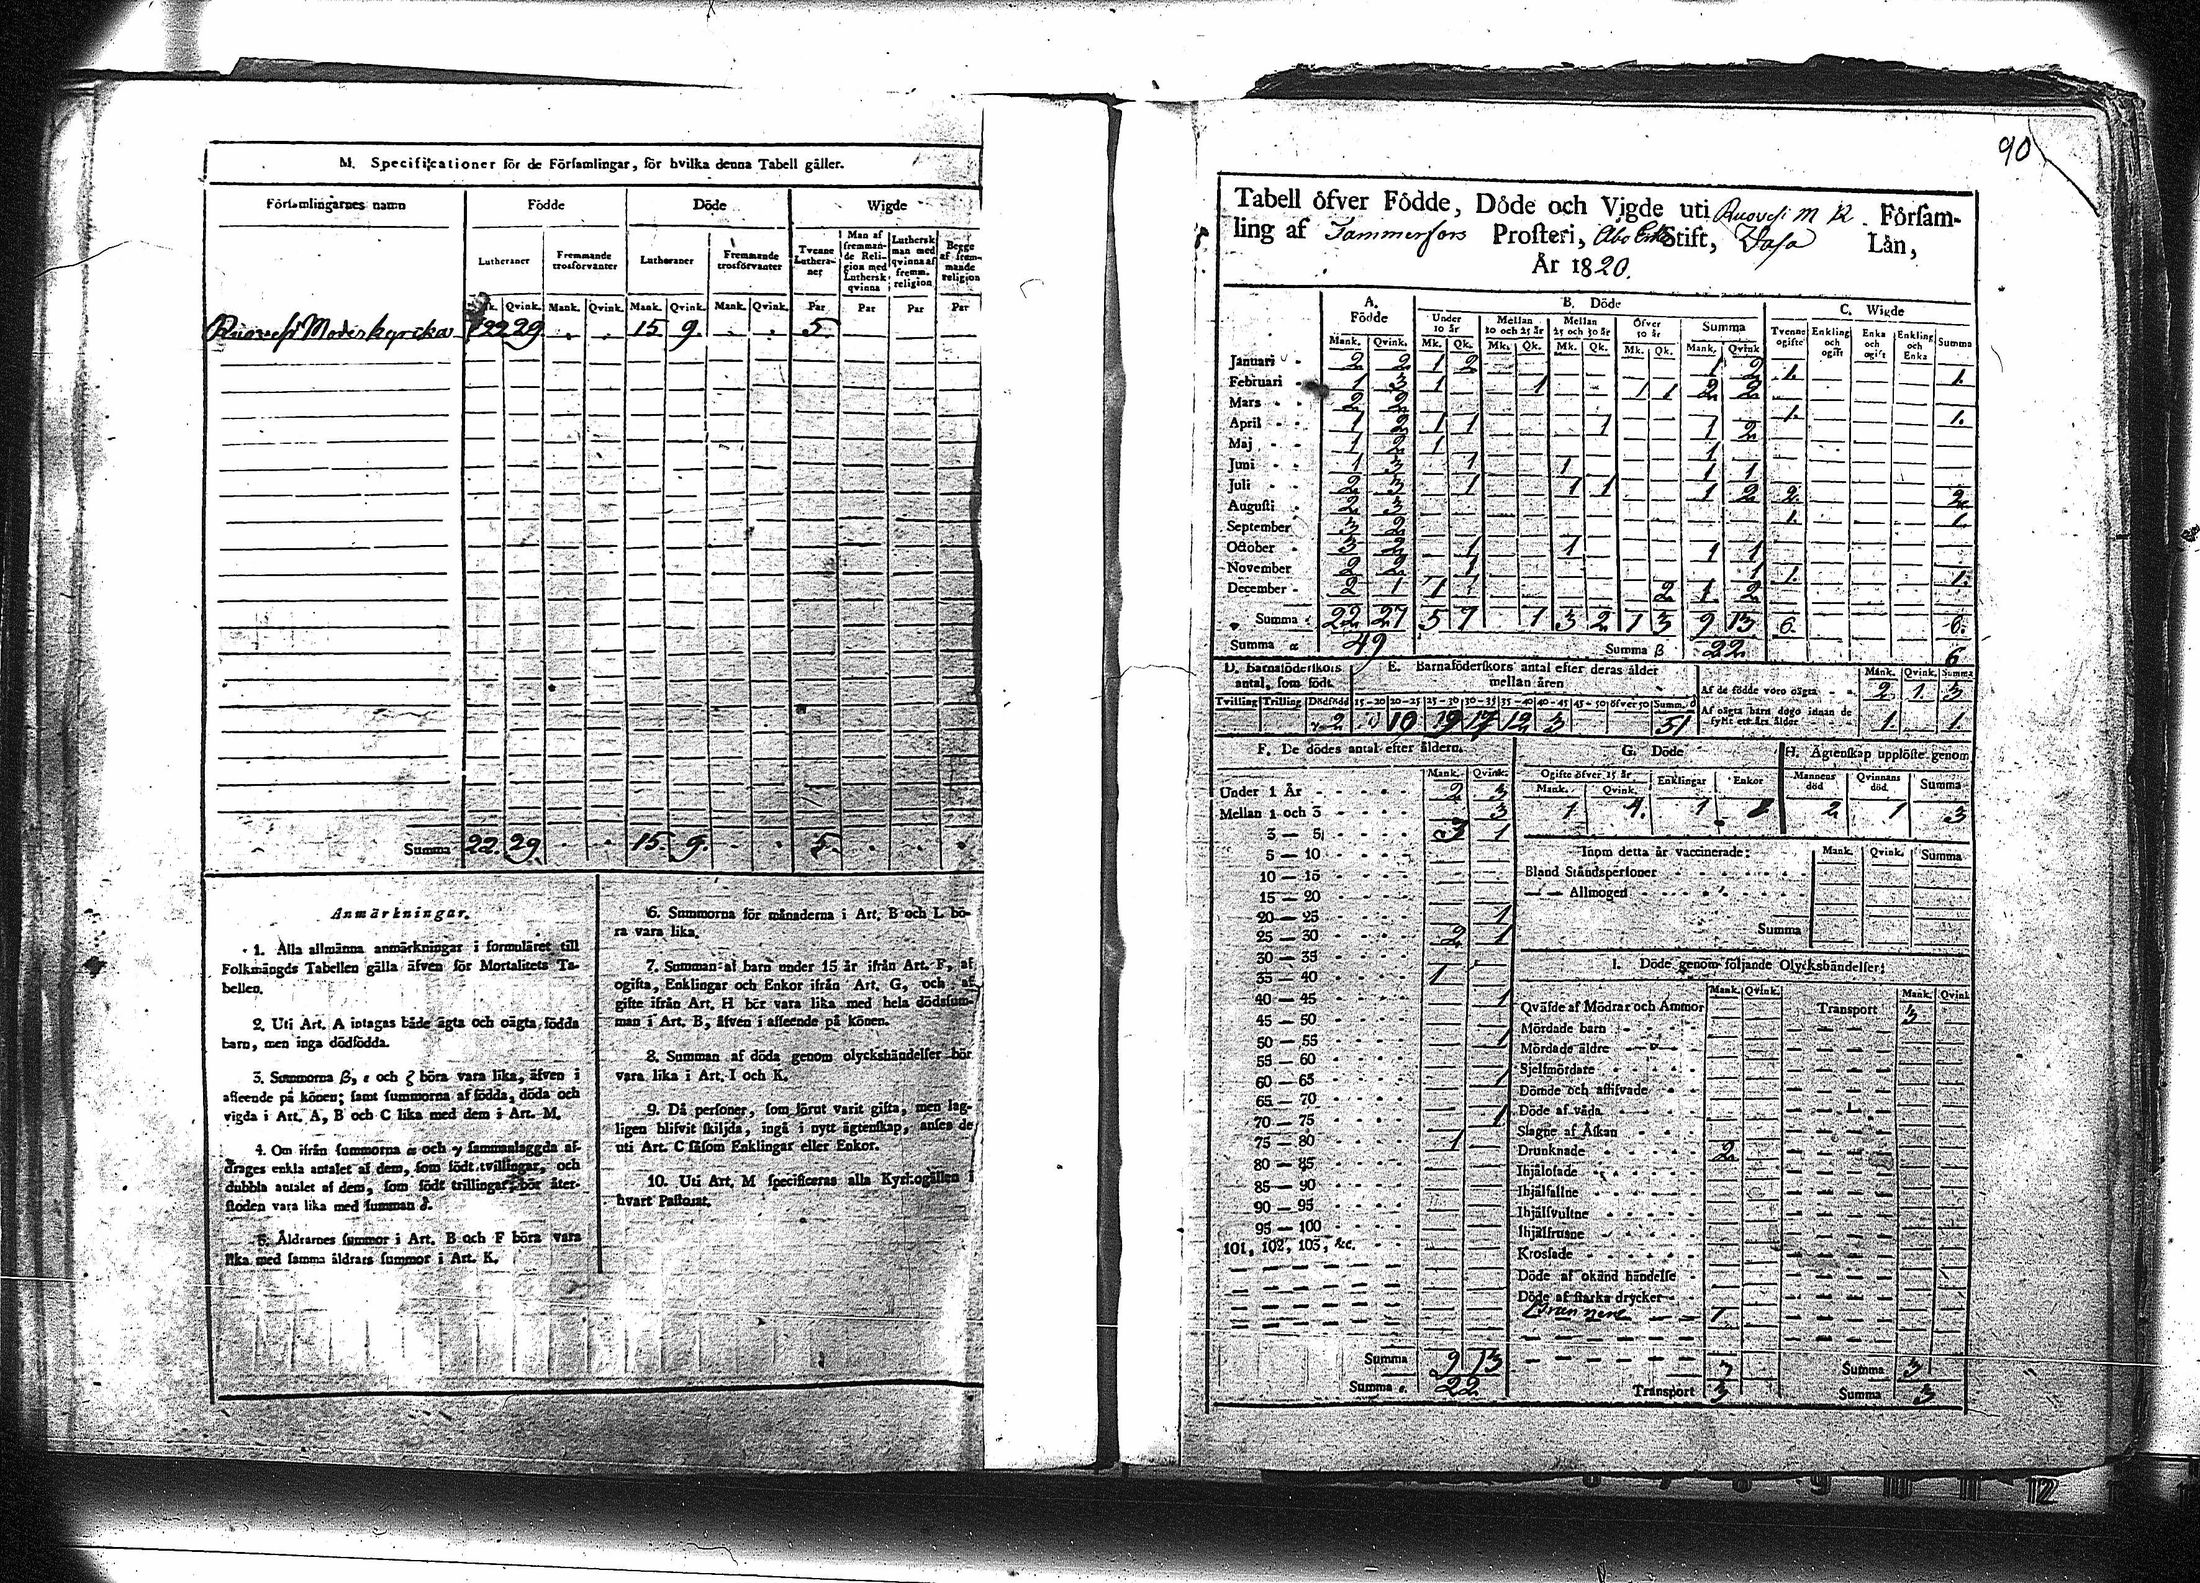 M. Specificationer för de Församlingar, för hvilka denna Tabell gäller.
Församlingarnes namn Födde Döde Wigde
Lutheraner Fremmande trosförvanter Lutheraner Fremmande trosförvanter Tvenne Lutheraner Man af fremmande Religion med Luthersk qvinna Luthersk man med qvinna af fremm. religion Begge af fremmande religion
Qvink. Mank. Qvink. Mank. Qvink. Mank. Qvink. Par Par Par Par
Ruovesi Moderkyrcka 22 29 . . 15 9. . . 5
Summa 22. 29. . . 15. 9. . . 5. . . .
Anmärkningar.
1. Alla allmänna anmärkningar i formuläret till
Folkmängds Tabellen gälla äfven för Mortalitets Ta-
bellen.
2. Uti Art. A intagas både ägta och oägta födda
barn, men inga dödfödda.
3. Summorna β, ε och ζ böra vara lika, äfven i
afseende på könen; samt summorna af födda, döda och
vigda i Art. A, B och C lika med dem i Art. M.
4. Om ifrån summorna α och γ sammanlaggda af-
drages enkla antalet af dem, som födt tvillingar, och
dubbla antalet af dem, som födt trillingar, bör åter-
stoden vara lika med summan δ.
5. Åldrarnes summor i Art. B och F böra vara
lika med samma åldrars summor i Art. K.
6. Summorna för månaderna i Art. B och L bö-
ra vara lika.
7. Summan af barn under 15 år ifrån Art. F, af
ogifta, Enklingar och Enkor ifrån Art. G, och af
gifte ifrån Art. H bör vara lika med hela dödssum-
man i Art. B, äfven i afseende på könen.
8. Summan af döda genom olyckshändelser bör
vara lika i Art. I och K.
9. Då personer, som förut varit gifta, men lag-
ligen blifvit skiljda, ingå i nytt ägtenskap, anses de
uti Art. C såsom Enklingar eller Enkor.
10. Uti Art. M specificeras alla Kyrkogällen i
hvart Pastorat.
90
Tabell öfver Födde, Döde och Vigde uti Ruovesi M K Försam-
ling af Tammerfors Prosteri, Åbo Stift, Vasa Län,
År 1820.
A. Födde B. Döde C. Wigde
Under 10 år Mellan 10 och 25 år Mellan 25 och 50 år Öfver 50 år Summa Tvenne ogifte Enkling och ogift Enka och ogift Enkling och Enka Summa
Mank. Qvink. Mk. Qk. Mk. Qk. Mk. Qk. Mk. Qk. Mank. Qvink
Januari 2 2 1 2 1 2 1. 1.
Februari 1 3 1 1 1 1 2 2
Mars 2 2 1. 1.
April 1 2 1 1 1 1 2
Maj 1 2 1 1
Juni 1 3 1 1 1 1
Juli 2 3 1 1 1 1 2 2. 2.
Augusti 2 3 1. 1.
September 3 2
October 3 2 1 1 1 1
November 2 2 1 1 1. 1.
December 2 1 1 1 2 1 2
Summa 22 27 5 7 1 3 2 1 3 9 13 6. 6.
Summa α 49 Summa β 22 6
D. Barnaföderskors antal, som födt E. Barnaföderskors antal efter deras ålder mellan åren Mank. Qvink. Summa
Af de födde voro oägta 2. 1. 3
Tvilling Trilling Dödfödd 15-20 20-25 25-30 30-35 35-40 40-45 45-50 öfver 50 Summ. δ
Af oägta barn dogo innan de fyllt ett års ålder 1. 1.
2 10 19 17 12 3 51
F. De dödes antal efter åldern. G. Döde H. Ägtenskap upplöste genom
Mank. Qvink. Ogifte öfver 15 år Enklingar Enkor Mannens död Qvinnans död. Summa
Under 1 År 2 3
Mank. Qvink.
Mellan 1 och 3 3
1 4. 1 2 1 3
3 — 5 3 1
5 — 10
10 — 15
15 — 20
20 — 25 1
25 — 30 2 1
30 — 35
35 — 40 1
40 — 45 1
45 — 50
50 — 55 1
55 — 60
60 — 65 1
65 — 70
70 — 75 1
75 — 80 1
80 — 85
85 — 90
90 — 95
95 — 100
101, 102, 103, &c.
Summa 9 13
Summa ε. 22
Inom detta år vaccinerade: Mank. Qvink. Summa
Bland Ståndspersoner
— — Allmogen
Summa
I. Döde genom följande Olyckshändelser:
Mank. Qvink. Mank. Qvink
Qväfde af Mödrar och Ammor Transport 3
Mördade barn
Mördade äldre
Sjelfmördare
Dömde och aflifvade
Döde af våda
Slagne af Åskan
Drunknade 2
Ihjälosade
Ihjälfallne
Ihjälsvultne
Ihjälfrusne
Krossade
Döde af okänd händelse
Döde af starka drycker
1
Summa 3
Transport 3 Summa 3